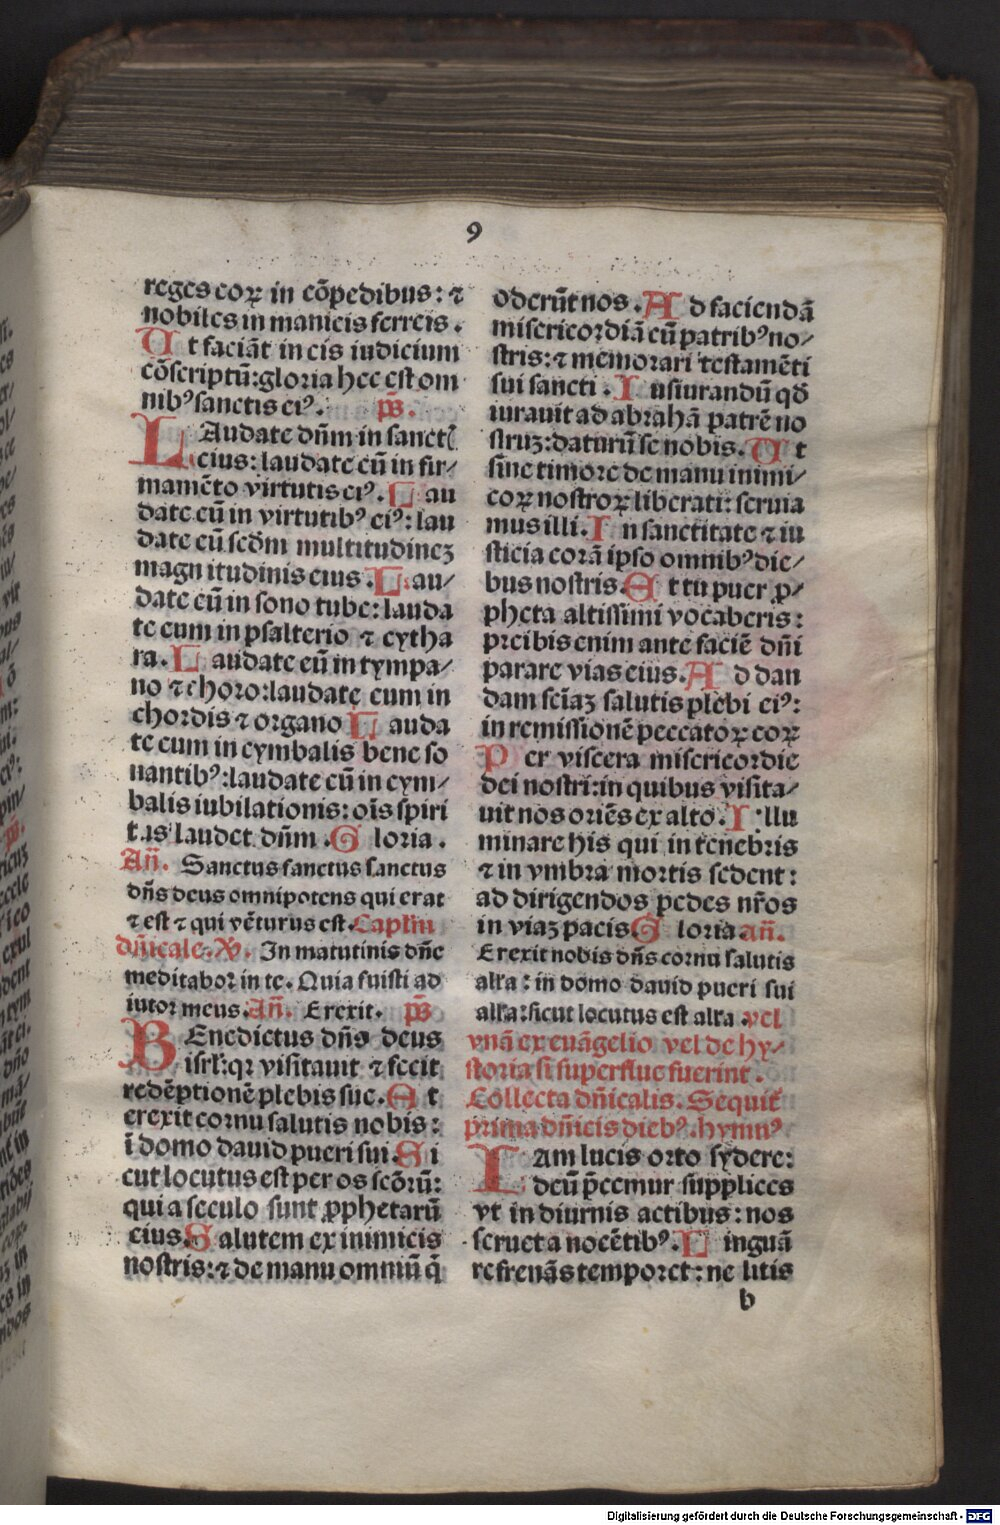 9
reges eoꝝ in cōpedibus: ⁊
nobiles in manicis ferreis.
Ut faciāt in eis iudicium
cōscriptū: gloria hec est om
nibꝰ sanctis eiꝰ. p̄s.
LAudate dn̄m in sanct̄
eius: laudate eū in fir⸗
mamēto virtutis eiꝰ. Lau
date eū in virtutibꝰ eiꝰ: lau
date eū scd̄m multitudinez
magnitudinis eius. Lau⸗
date eū in sono tube: lauda
te eum in psalterio ⁊ cytha
ra. Laudate eū in tympa⸗
no ⁊ choro: laudate eum in
chordis ⁊ organo Lauda
te eum in cymbalis bene so
nantibꝰ: laudate eū in cym⸗
balis iubilationis: oīs spiri
tus laudet dn̄m. Gloria.
Añ. Sanctus sanctus sanctus
dn̄s deus omnipotens qui erat
⁊ est ⁊ qui vēturus est. Capl̄m
dn̄icale. V. In matutinis dn̄e
meditabor in te. Quia fuisti ad
iutor meus. Añ. Erexit. p̄s
BEnedictus dn̄s deus
isrl̄: qꝛ visitauit ⁊ fecit
redēptionē plebis sue. Et
erexit cornu salutis nobis:
ī domo dauid pueri sui Si
cut locutus est per os scōrū:
qui a seculo sunt ꝓphetarū
eius. Salutem ex inimicis
nostris: ⁊ de manu omniū q̄
oderūt nos. Ad faciendā
misericordiā cū patribꝰ no⸗
stris: ⁊ memorari testamēti
sui sancti. Iusiurandū qd̄
iurauit ad abrahā patrē no
struz: daturū se nobis. Ut
sine timore de manu inimi⸗
coꝝ nostroꝝ liberati: seruia
mus illi. In sanctitate ⁊ iu
sticia corā ipso omnibꝰ die⸗
bus nostris. Et tu puer ꝓ⸗
pheta altissimi vocaberis:
preibis enim ante faciē dn̄i
parare vias eius. Ad dan
dam sciāz salutis plebi eiꝰ:
in remissionē peccatoꝝ eoꝝ
Per viscera misericordie
dei nostri: in quibus visita⸗
uit nos oriēs ex alto. Illu
minare his qui in tenebris
⁊ in vmbra mortis sedent:
ad dirigendos pedes nr̄os
in viaz pacis. Gloria añ.
Erexit nobis dn̄s cornu salutis
alľa: in domo dauid pueri sui
alľa: sicut locutus est alľa. vel
vnā ex euāgelio vel de hy⸗
storia si superflue fuerint.
Collecta dn̄icalis. Sequit̄
prima dn̄icis diebꝰ. hymnꝰ
IAm lucis orto sydere:
deū p̄cemur supplices
vt in diurnis actibus: nos
seruet a nocētibꝰ. Linguā
refrenās temperet: ne litis
b
Digitalisierung gefördert durch die Deutsche Forschungsgemeinschaft - DFG